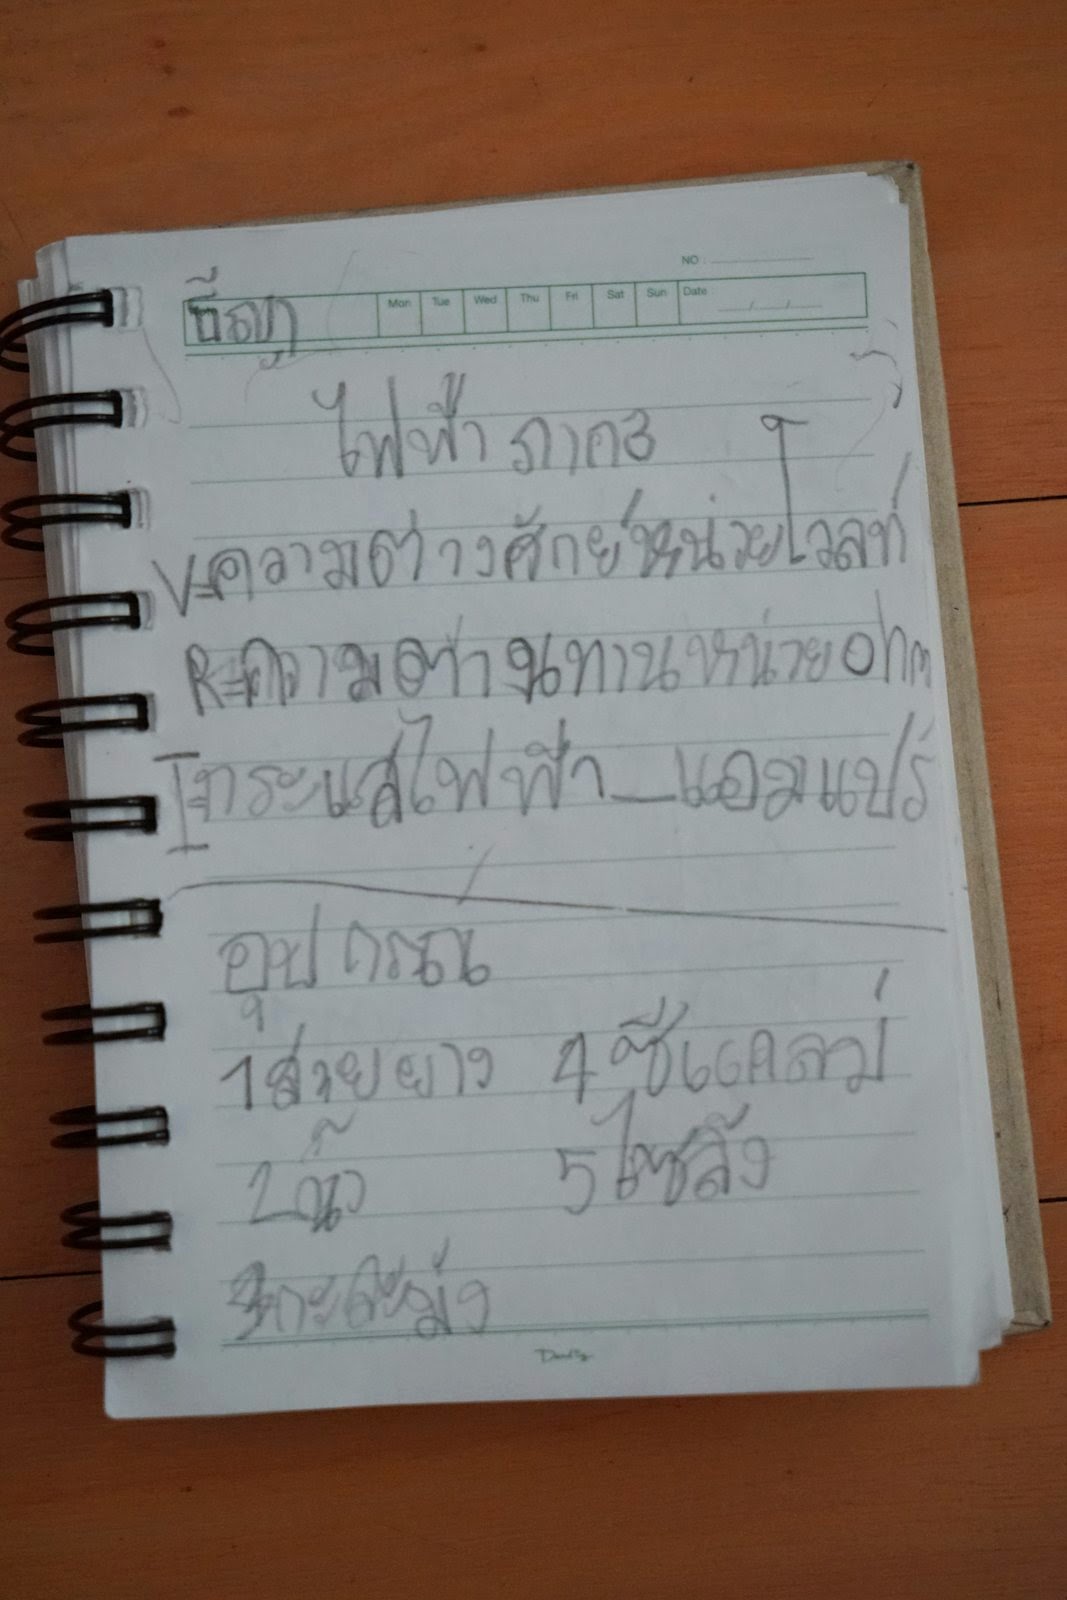 NO :
Mon Tue Wed Thu Fri Sat Sun Date / /
ไฟฟ้า ภาค3
V=ความต่างศักย์หน่วยโวลท์
R=ความต้านทานหน่วยohm
I=กระแสไฟฟ้า_แอมแปร์
อุปกรณ
1สายยาง 4ซีแคลม่
2น้ำ 5ไซลิง
3กะละม่ง